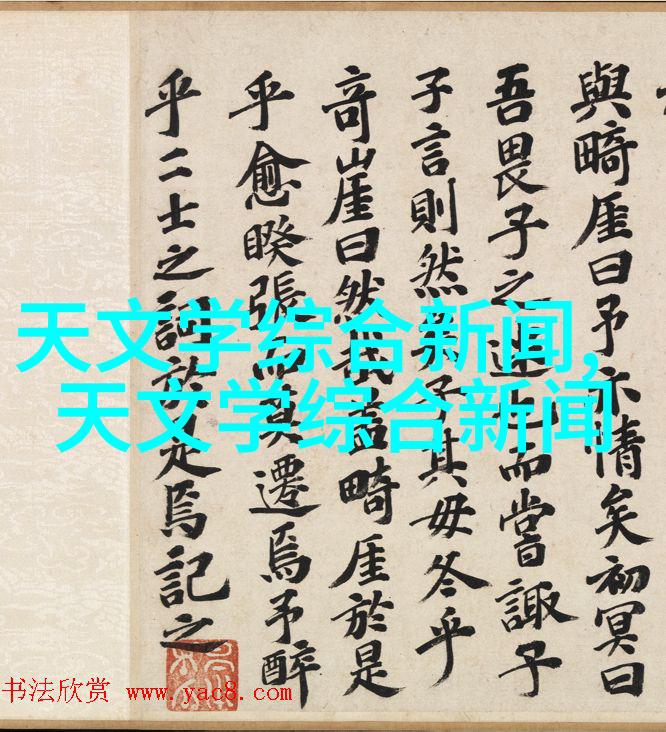 與畸厓曰予亦情矣初冥曰
吾畏子之也而嘗諏子
子言則然子其毋冬乎
竒崖曰然畸厓於是
乎愈睽張而冥遷焉予醉
乎二士之詞於是焉記之
天文学综合新闻,
天文学综合新闻
书法欣赏 www.yac8.com